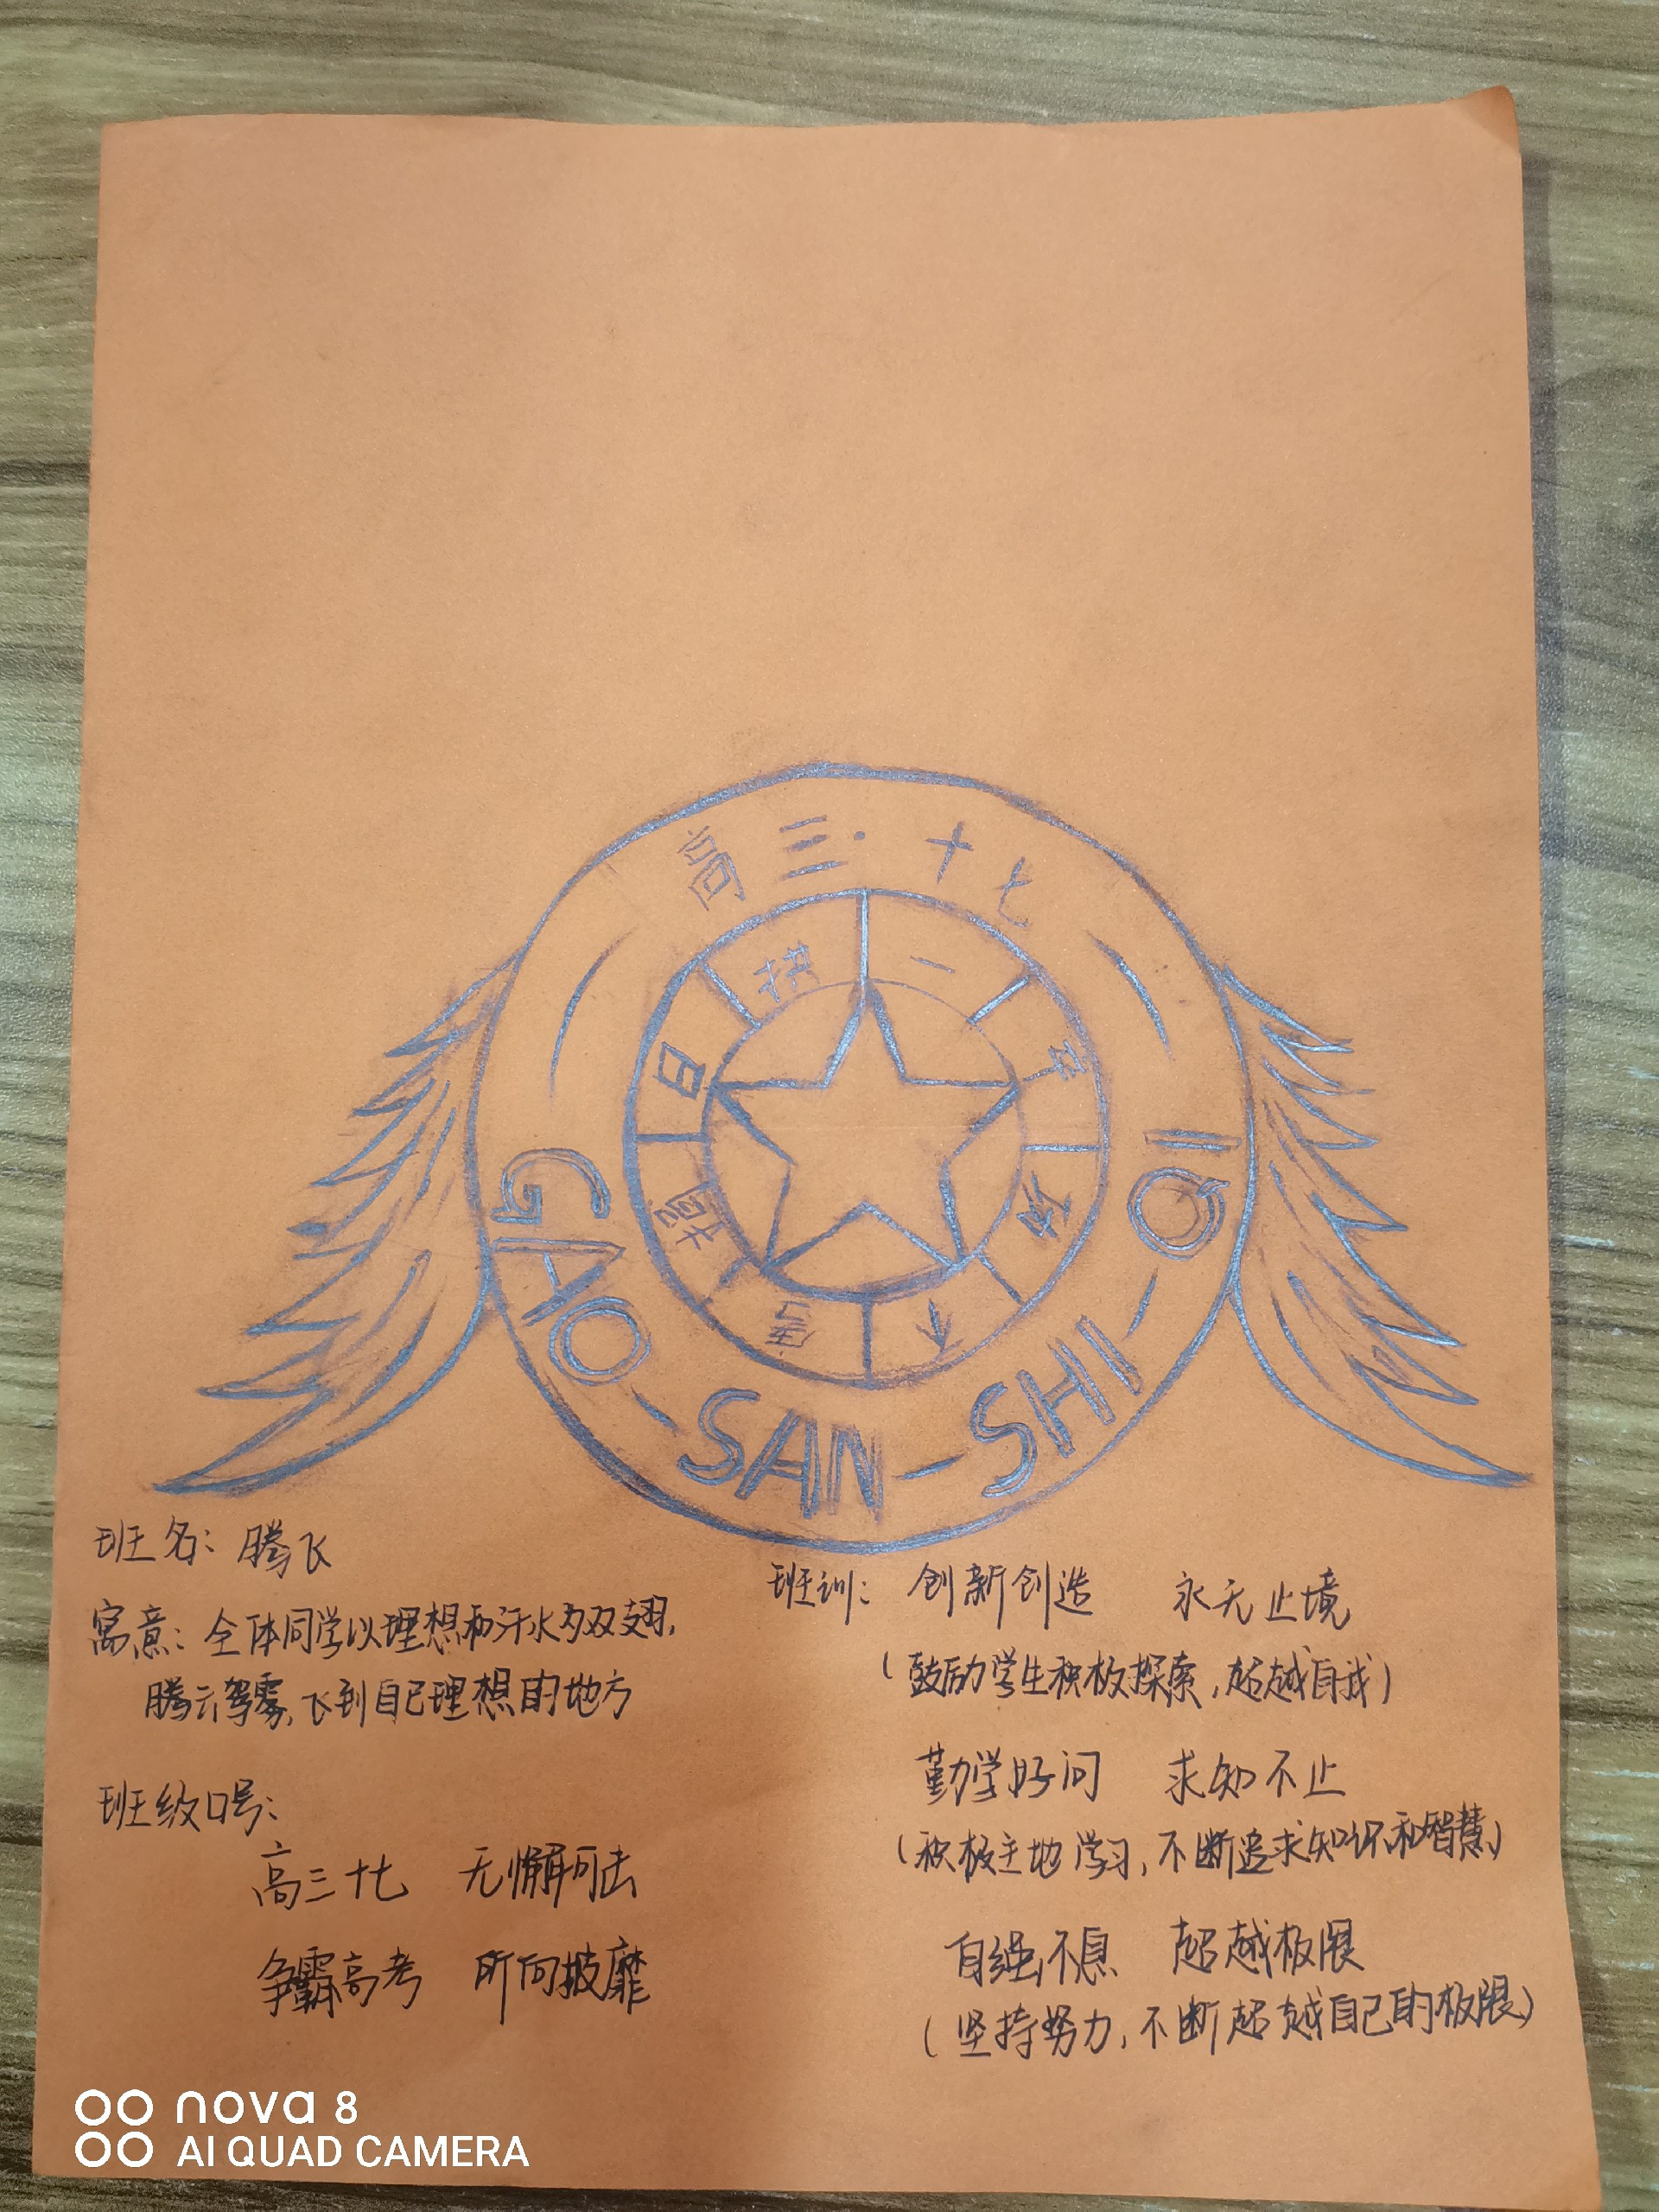 高三·十七
一
日
GAO-SAN-SHI-QI
班名：腾飞
寓意：全体同学以理想和汗水为双翅，
腾云驾雾，飞到自己理想的地方
班级口号：
高三十七 无懈可击
争霸高考 所向披靡
班训：创新创造 永无止境
（鼓励学生积极探索，超越自我）
勤学好问 求知不止
（积极主地学习，不断追求知识和智慧）
自强不息 超越极限
（坚持努力，不断超越自己的极限）
nova 8
AI QUAD CAMERA